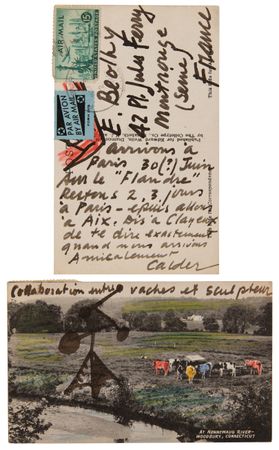 AIR MAIL
15¢
PAR AVION
BY AIR MAIL
E. Beothy
42 Pl. Jules Ferry
Montrouge
(Seine)
France
arrivons à
Paris 30(?) Juin
sur le "Flandre"
Restons 2, 3, jours
à Paris - puis allons
à Aix. Dis à Clayeux
de te dire exactement
quand nous arrivons
Amicalement
Calder
Collaboration entre vaches et sculpteur
AT NONNEWAUG RIVER-
WOODBURY, CONNECTICUT